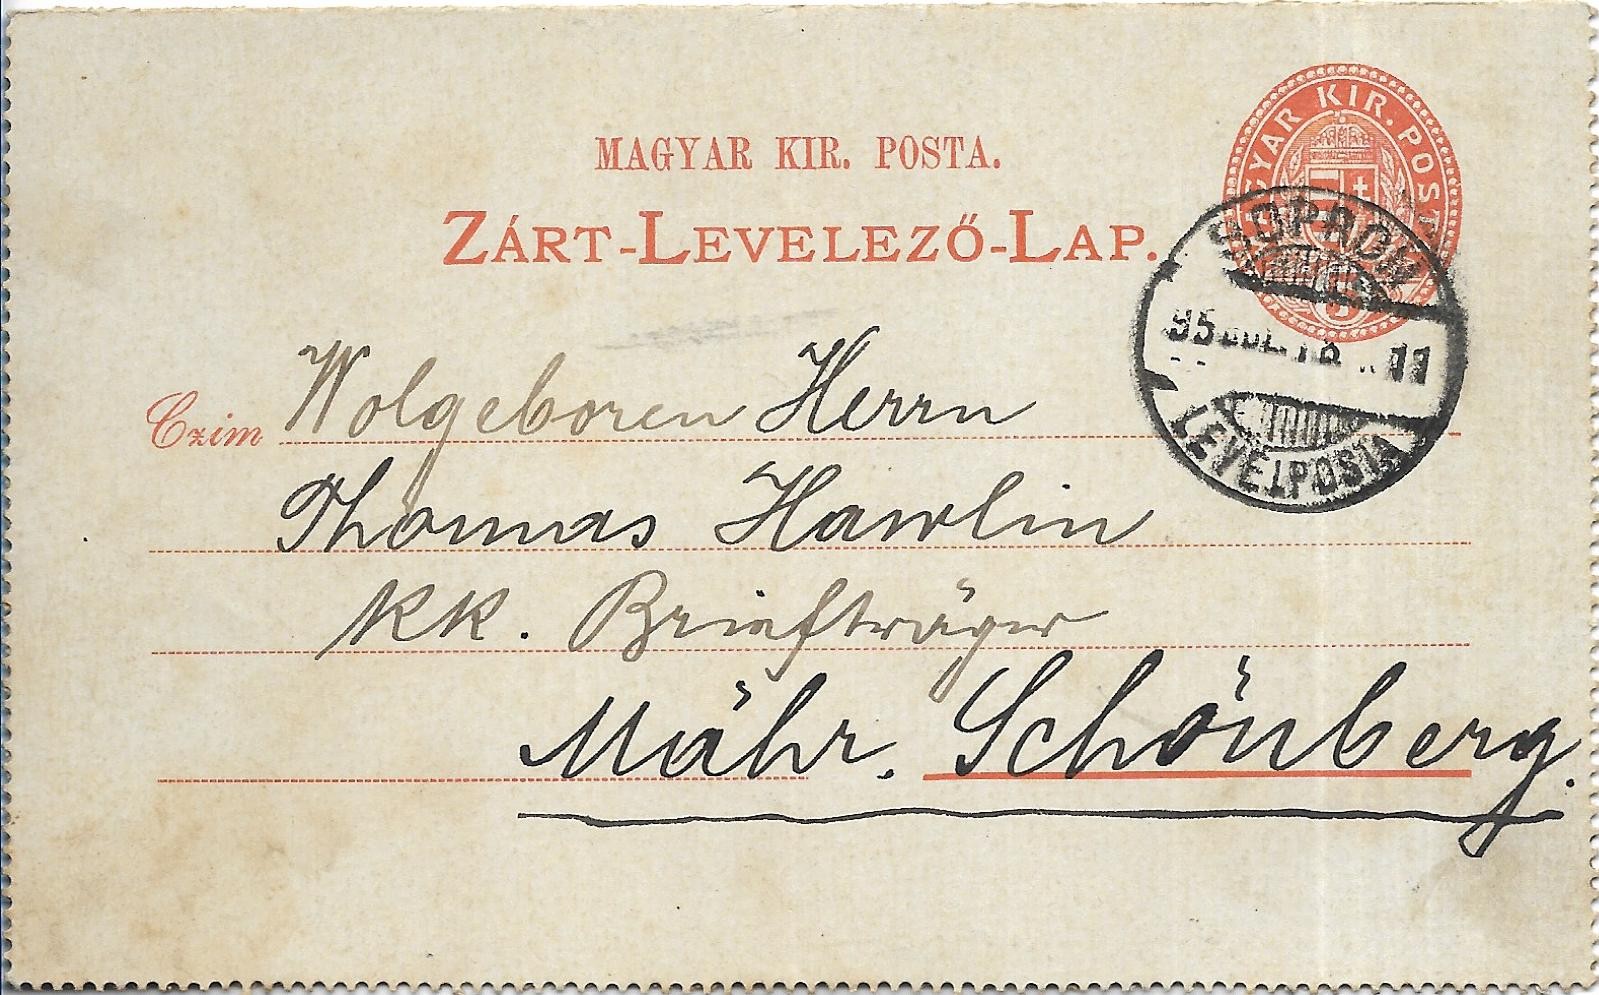 MAGYAR KIR. POSTA.
MAGYAR KIR. POSTA.
ZÁRT-LEVELEZŐ-LAP.
SOPRON
95 JUL. 18 11
LEVÉLPOSTA
5
Czim Wolgeboren Herrn
Thomas Hawlin
KK. Briefträger
Mähr. Schönberg.